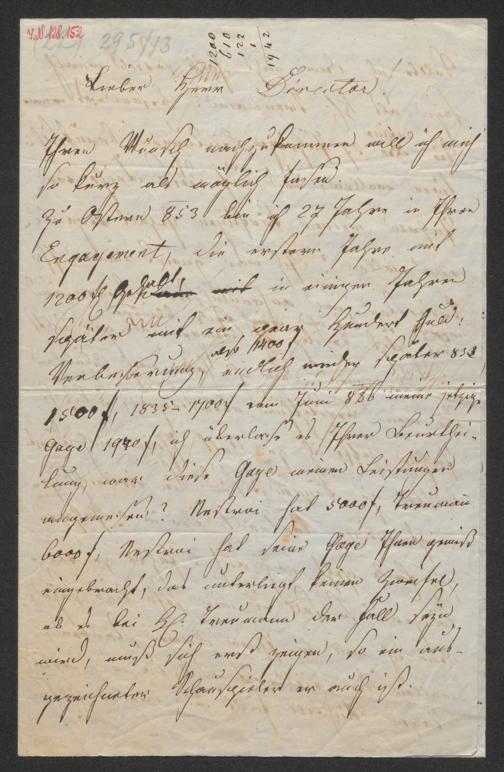 I.N. 128.152
295/13
1200
610
122
1942
Lieber Herr Director!
Ihren Wunsch nachzukommen will ich mich
so kurz als möglich fassen.
Zu Ostern 853 bin ich 27 Jahre in Ihren
Engagement, die erstern Jahre mit
1200 f Gehalt, in einigen Jahren
später mit ein paar Hundert Guld:
Verbesserung, als 1400 f endlich wieder später 833
1500 f, 1835 1700 f vom Juni 836 meine jetzige
Gage 1940 f, ich überlasse es Ihrer Beurthei-
lung war diese Gage meinen Leistungen
angemessen? Nestroi hat 5000 f, Treumann
6000 f, Nestroi hat seine Gage Ihnen gewiß
eingebracht, das unterliegt keinen Zweifel,
ob es bei H. Treumann der Fall seyn
wird, muß sich erst zeigen, so ein aus-
gezeichneter Schauspieler er auch ist.